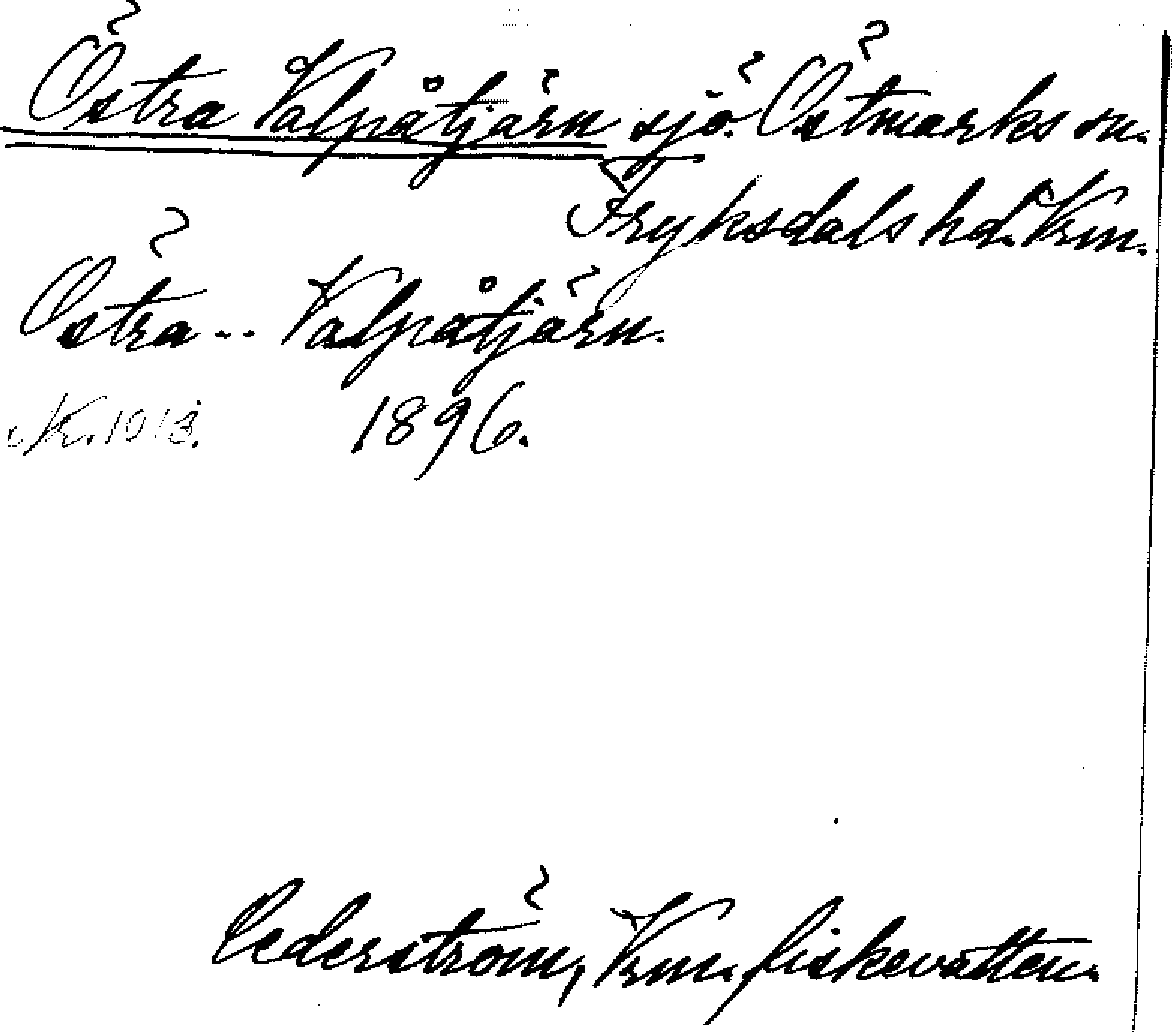 Östra Valpåtjärn sjö. Östmarks sn.
Fryksdals hd. Vrm.
Östra -- Valpåtjärn.
K. 1913. 1896.
Cederström, Vrm. fiskevatten.